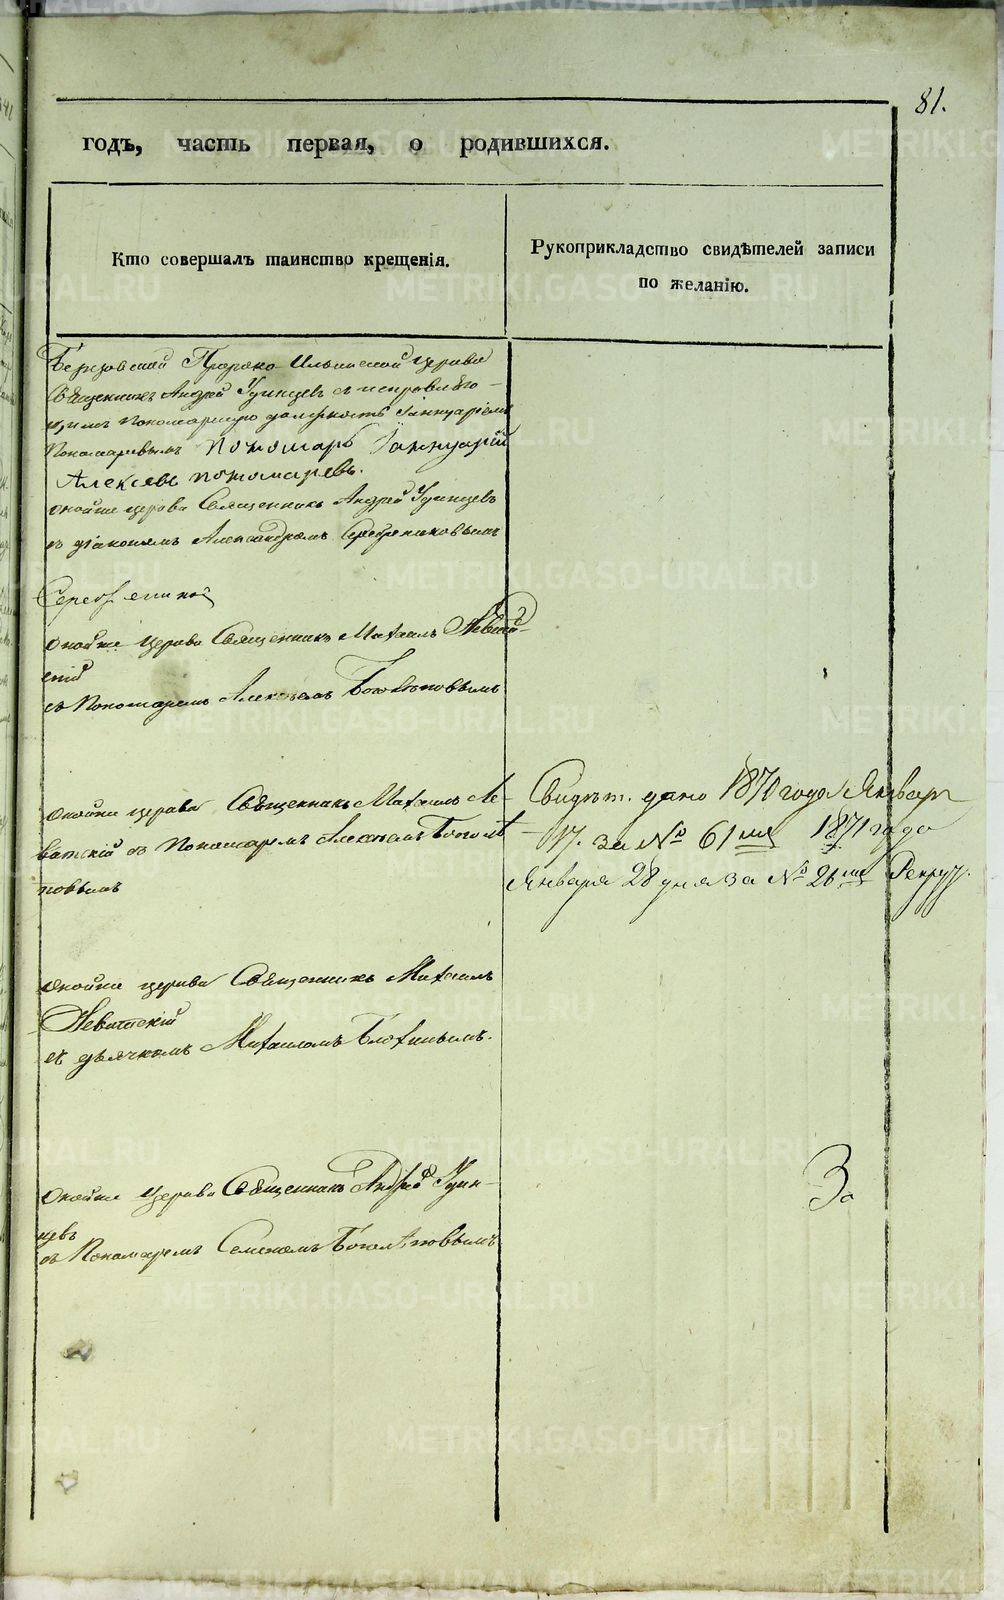 81.
годъ, часть первая, о родившихся.
Кто совершалъ таинство крещенія.
Рукоприкладство свидѣтелей записи
по желанію.
Пророко Ильинской церкви
Священникъ Андрей Удинцевъ съ исправляю-
щимъ пономарскую должность Іаннуаріемъ
Пономаревымъ Пономарь Іаннуарій
Алексѣевъ Пономаревъ.
оной же церкви Священникъ Андрей Удинцевъ
съ діакономъ Александромъ Серебрениковымъ
оной же церкви Священникъ Михаилъ Левит-
скій
съ Пономаремъ Алексѣемъ Боголѣповымъ
оной же церкви Священникъ Михаилъ Ле-
витскій съ Пономаремъ Алексѣемъ Боголѣ
повымъ
Свидѣт. дано 1870 года Январ
17. за № 61мъ 1871 года
Января 28 дня за № 26мъ Рекрут.
оной же церкви Священникъ Михаилъ
Левитскій
съ дьячкомъ Михаиломъ Блохинымъ.
оной же церкви Священникъ Андрей Удин-
цевъ
съ Пономаремъ Семеномъ Боголѣповымъ
METRIKI.GASO-URAL.RU